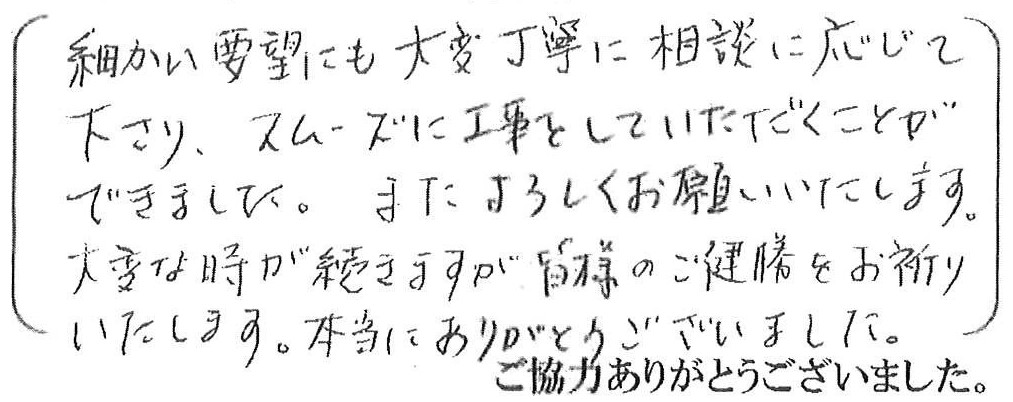 細かい要望にも大変丁寧に相談に応じて
下さり、スムーズに工事をしていただくことが
できました。またよろしくお願いいたします。
大変な時が続きますが皆様のご健勝をお祈り
いたします。本当にありがとうございました。
ご協力ありがとうございました。